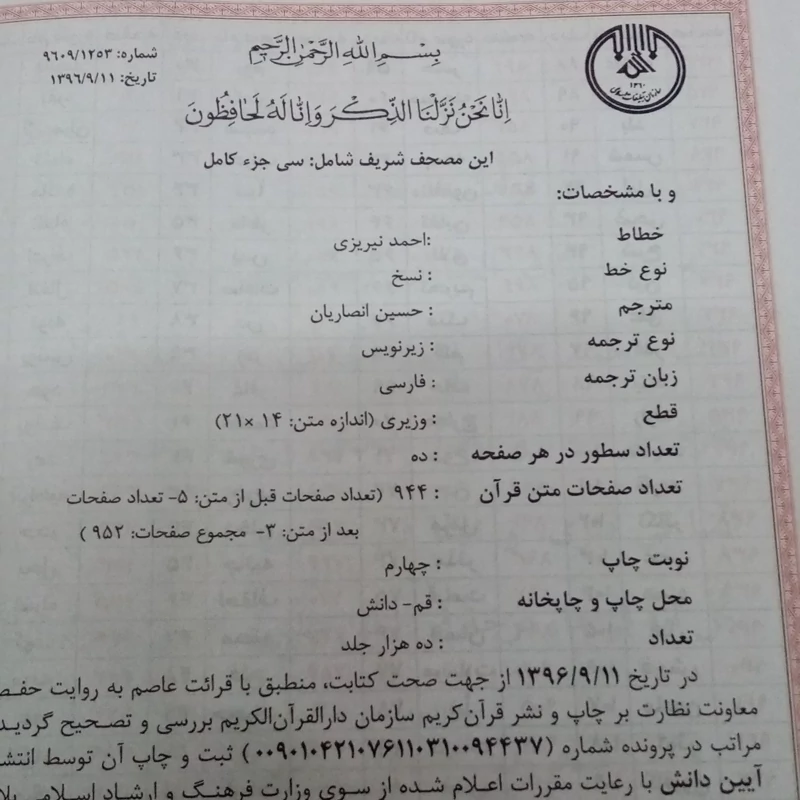 شماره: ۹۶۰۹/۱۲۵۳
تاریخ: ۱۳۹۶/۹/۱۱
بِسْمِ اللهِ الرَّحْمٰنِ الرَّحِیمِ
اِنّا نَحْنُ نَزَّلْنَا الذِّکْرَ وَ اِنّا لَهُ لَحافِظُونَ
۱۳۶۰
سازمان تبلیغات اسلامی
این مصحف شریف شامل: سی جزء کامل
و با مشخصات:
خطاط :احمد نیریزی
نوع خط : نسخ
مترجم : حسین انصاریان
نوع ترجمه : زیرنویس
زبان ترجمه : فارسی
قطع : وزیری (اندازه متن: ۱۴ ×۲۱)
تعداد سطور در هر صفحه : ده
تعداد صفحات متن قرآن : ۹۴۴ (تعداد صفحات قبل از متن: ۵- تعداد صفحات
بعد از متن: ۳- مجموع صفحات: ۹۵۲ )
نوبت چاپ : چهارم
محل چاپ و چاپخانه : قم- دانش
تعداد : ده هزار جلد
در تاریخ ۱۳۹۶/۹/۱۱ از جهت صحت کتابت، منطبق با قرائت عاصم به روایت حفص
معاونت نظارت بر چاپ و نشر قرآن‌کریم سازمان دارالقرآن‌الکریم بررسی و تصحیح گردید
مراتب در پرونده شماره (۰۰۹۰۱۰۴۲۱۰۷۶۱۱۰۳۱۰۰۹۴۴۳۷) ثبت و چاپ آن توسط
آیین دانش با رعایت مقررات اعلام شده از سوی وزارت فرهنگ و ارشاد اسلامی